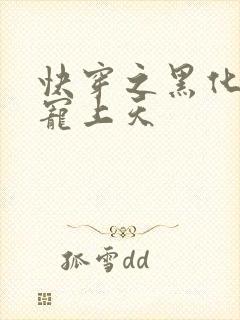 快穿之黑化
寵上天
孤雪dd